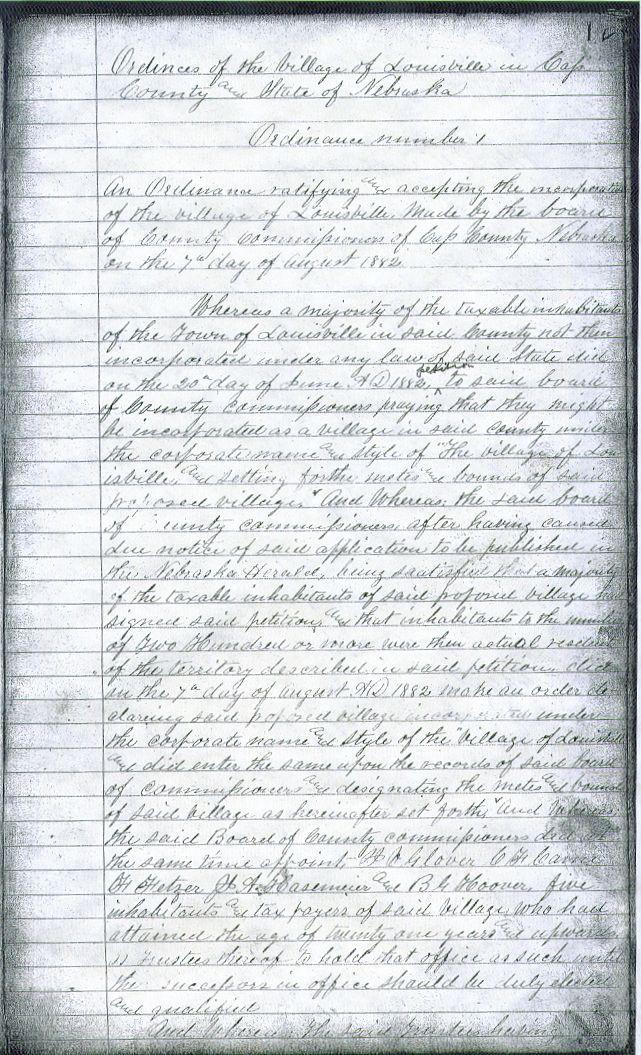 12
Ordinces of the Village of Louisville in Cass
County and State of Nebraska
Ordinance number 1
An Ordinance ratifying and accepting the incorporation
of the village of Louisville. Made by the board
of County Commissioners of Cass County Nebraska
on the 7th day of August 1882
Whereas a majority of the taxable inhabitants
of the Town of Louisville in said County not then
incorporated under any law of said State did
on the 20th day of June AD 1882, petition to said board
of County commissioners praying that they might
be incorporated as a village in said County under
the corporate name and style of "The village of Lou
isville, and setting forth metes and bounds of said
proposed village," And Whereas, the said board
of county commissioners after having caused
due notice of said application to be published in
the Nebraska Herald, being saatisfied that a majority
of the taxable inhabitants of said proposed village had
signed said petition, and that inhabitants to the number
of Two Hundred or more were then actual residents
of the territory described in said petition, did
on the 7th day of August AD 1882 make an order de
clareing said proposed village incorporated under
the corporate name and style of the "Village of Louisville
and did enter the same upon the records of said board
of commissioners and designating the metes and bounds
of said Village as hereinafter set forth," And Whereas
the said Board of County commissioners did at
the same time appoint H V Glover C H
H Fetzer J A Hasemeier and B G Hoover, five
inhabitants and tax payers of said Village who had
attained the age of twenty one years and upwards
as Trustees thereof to hold that office as such until
the successors in office should be duly elected
and qualified
And Whereas The said Trustees having